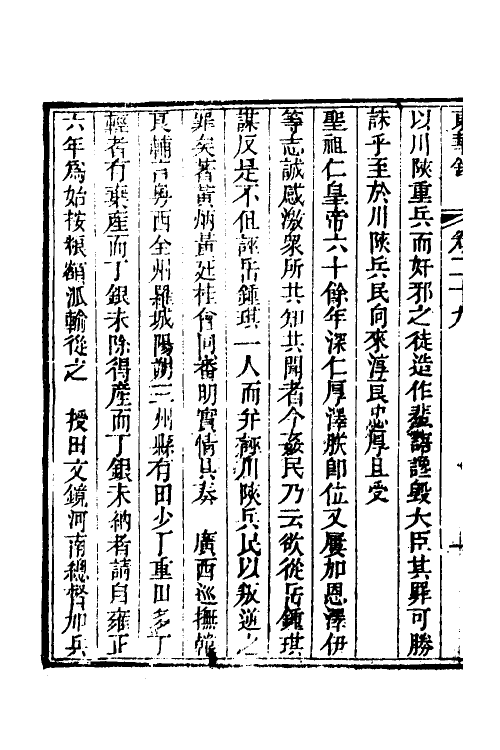 東華錄 卷二十九
以川陝重兵而奸邪之徒造作蜚語讒毀大臣其罪可勝
誅乎至於川陝兵民向來淳良忠厚且受
聖祖仁皇帝六十餘年深仁厚澤朕即位又屢加恩澤伊
等志誠感激衆所共知共聞者今姦民乃云欲從岳鍾琪
謀反是不但誣岳鍾琪一人而并誣川陝兵民以叛逆之
罪矣著黃炳黃廷桂會同審明實情具奏　廣西巡撫韓
良輔言粵西全州羅城陽朔三州縣有田少丁重田多丁
輕者有棄產而丁銀未除得產而丁銀未納者請自雍正
六年爲始按糧額派輸從之　授田文鏡河南總督加兵